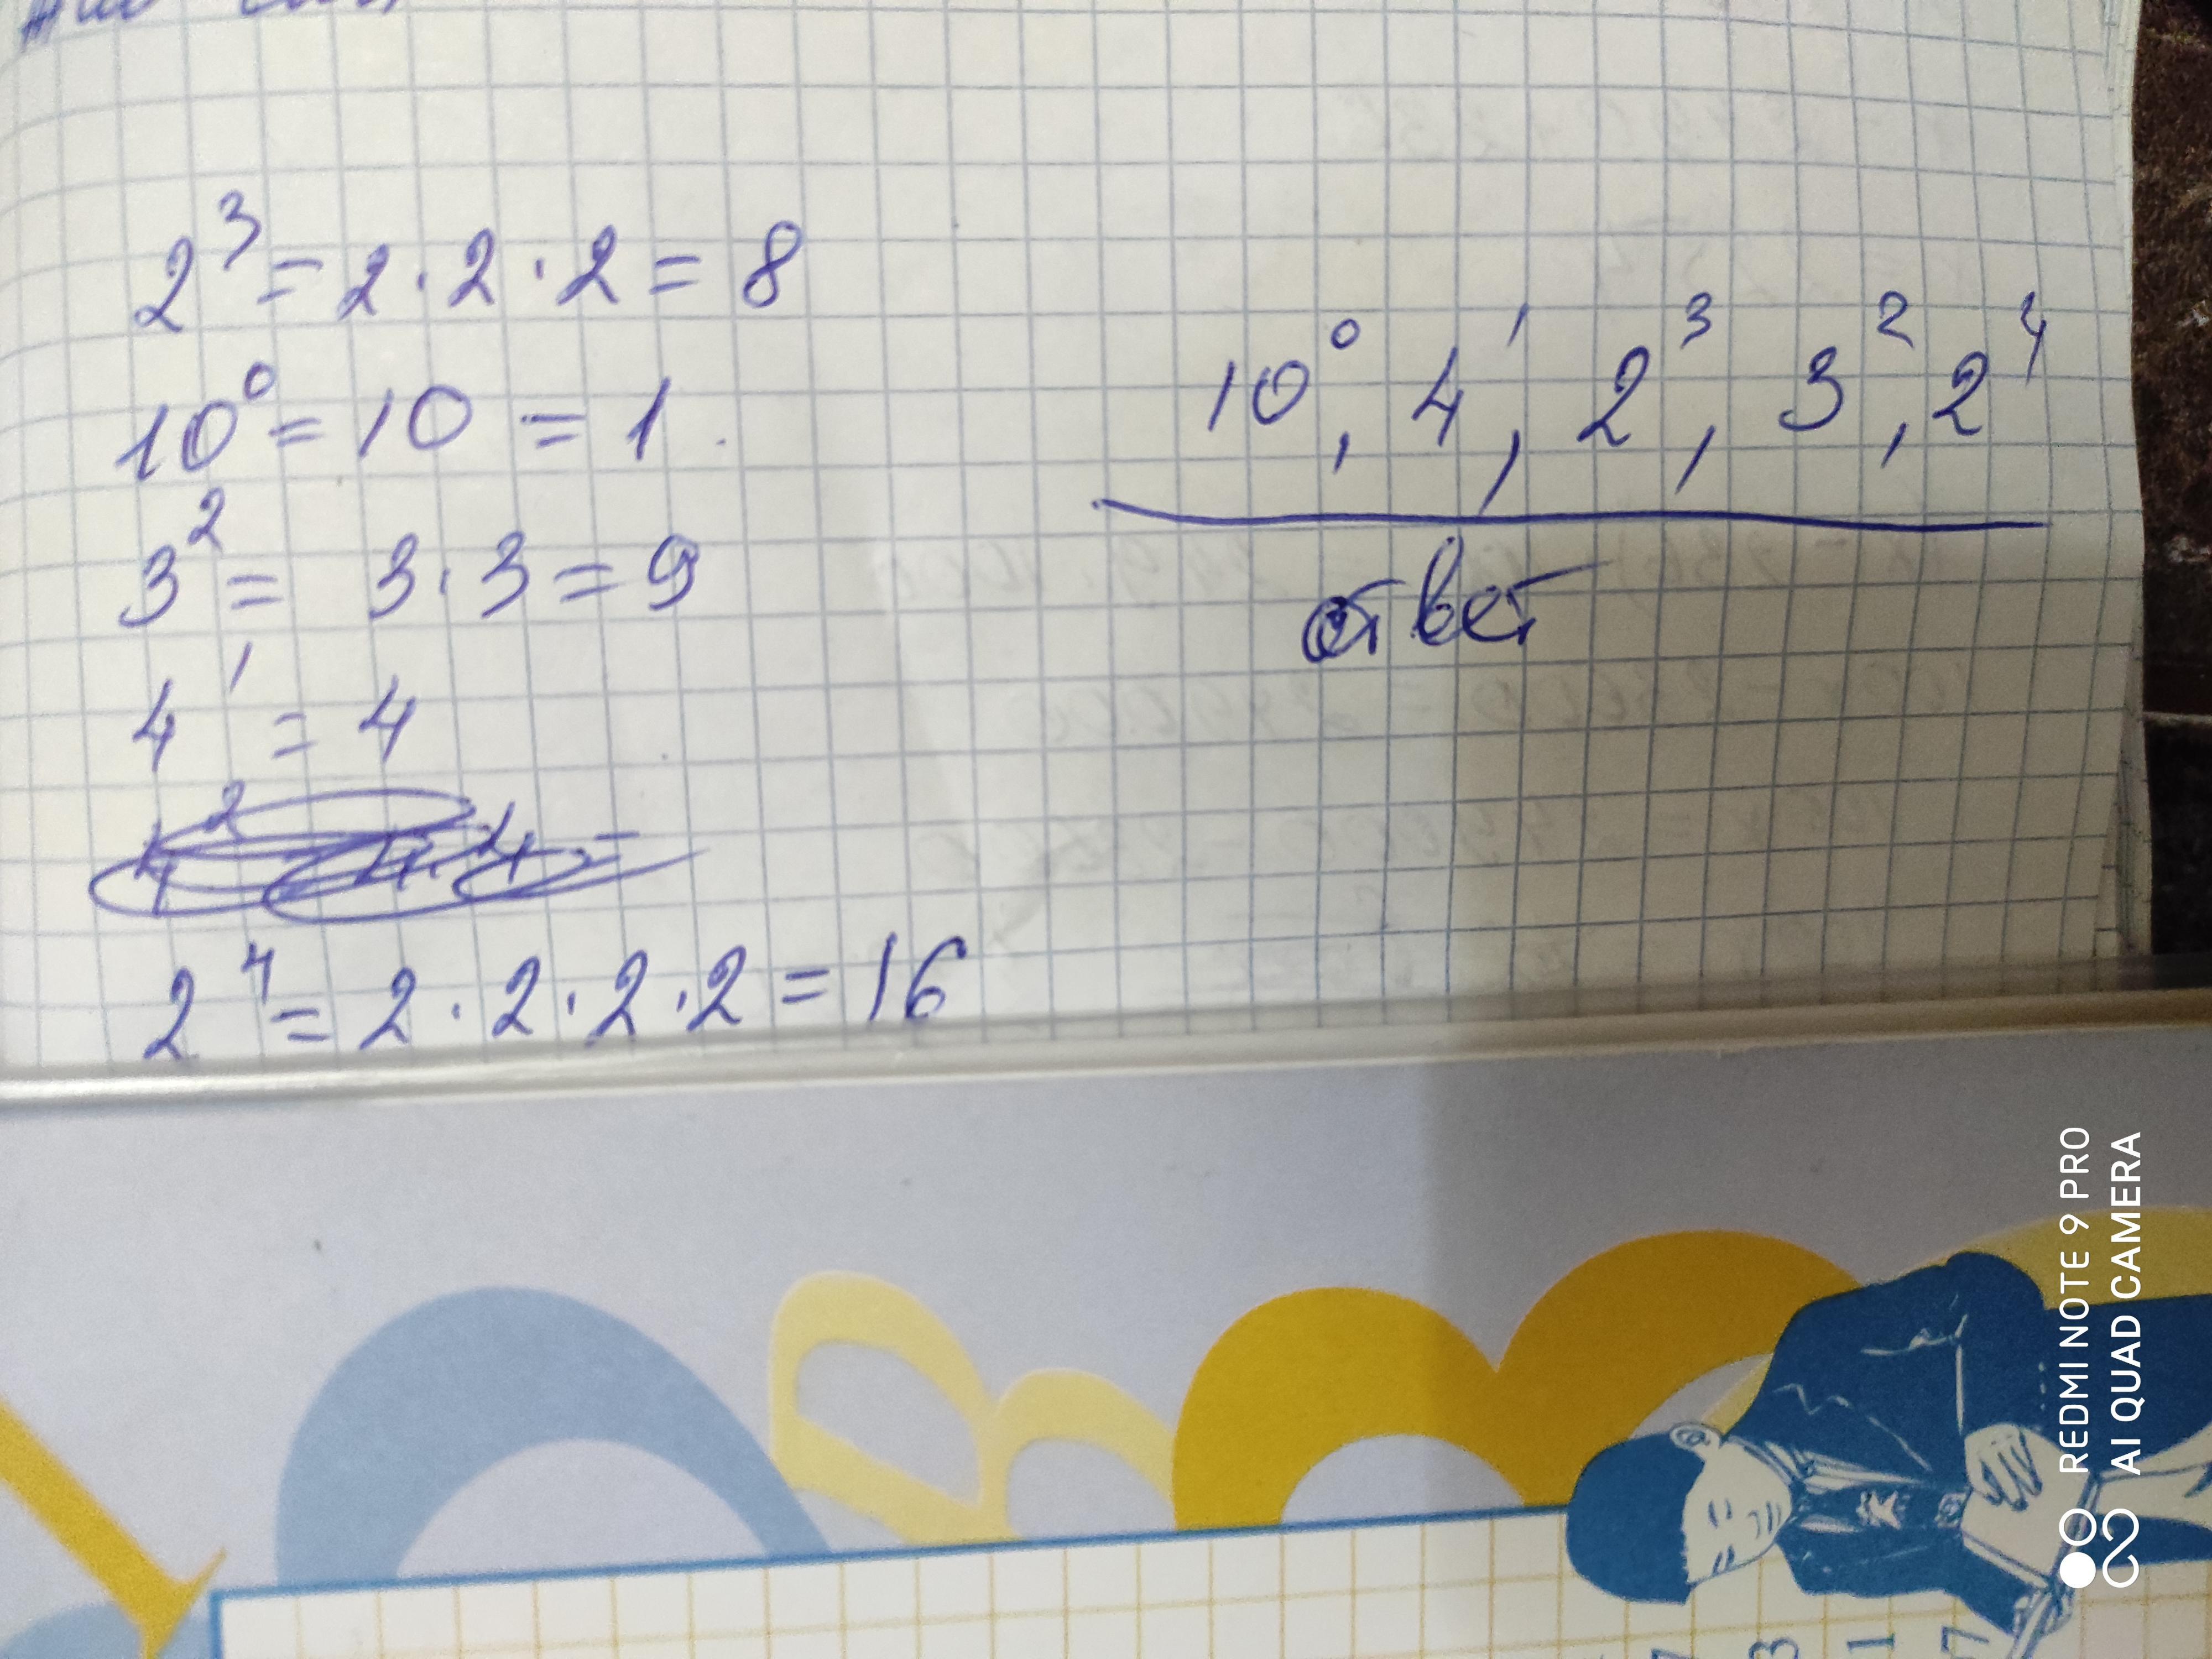 2³ = 2 · 2 · 2 = 8
10⁰ = 10 = 1.
3² = 3 · 3 = 9
4¹ = 4
2⁴ = 2 · 2 · 2 · 2 = 16
10⁰, 4¹, 2³, 3², 2⁴
ответ
REDMI NOTE 9 PRO
AI QUAD CAMERA